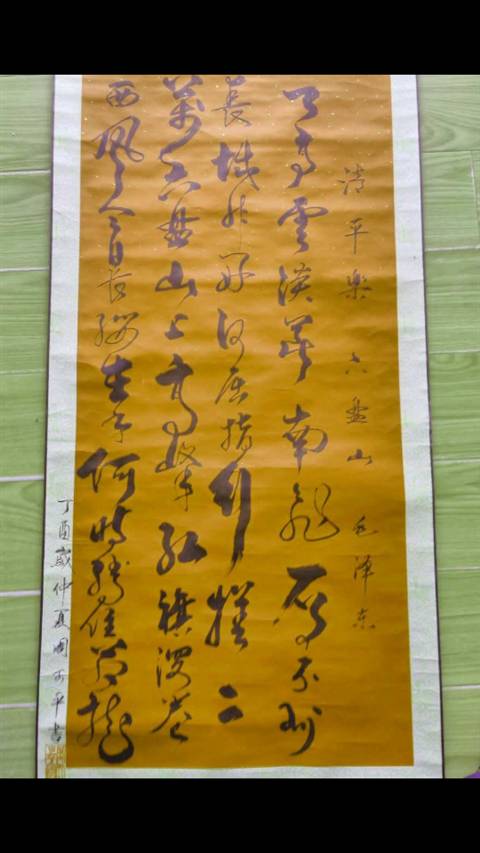 清平樂 六盘山 毛泽东
天高雲淡望南飛雁不到
長城非好汉屈指行程二
萬六盘山上高峰红旗漫卷
西風今日长缨在手何時缚住苍龍
丁酉歲仲夏周平書